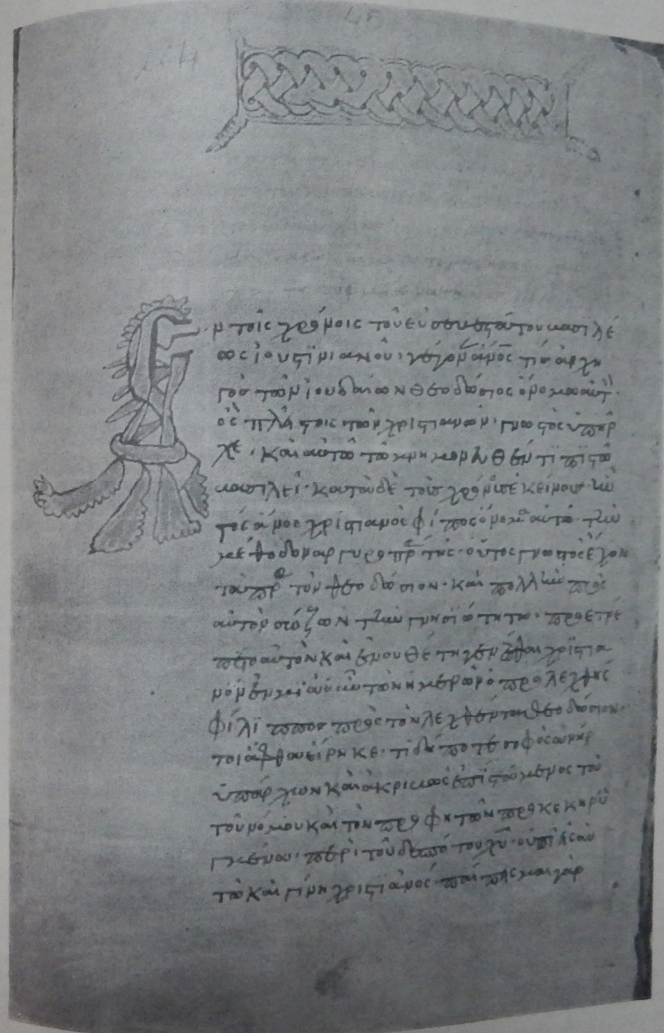 Ἐν τοῖς χρόνοις τοῦ εὐσεβεστάτου βασιλέ
ως ἰουστινιανοῦ· ἄνος τίς ἀρχη
γὸς τῶν ἰουδαίων θεοδώσιος ὄνομα αὐτῶ·
ὃς τῶν χριστιανῶν· γνωστὸς ὑπῆρ
χε· καὶ αὐτῶ τῶ μνημονευθέντι πιστῶ
βασιλεῖ· κατὰ δὲ τοὺς χρόνους ἐκείνους ἦν
τίς ἄνος χριστιανὸς ὄνομα αὐτῶ· τὴν
μέθοδον ἀργυροπράτης· οὗτος γνωστὸς ἔχων
τὰ πρὸς τὸν θεοδώσιον· καὶ πολλὴν πρὸς
αὐτὸν σώζων τὴν γνησιότητα· προετρέ
πετο αὐτὸν καὶ ἐνουθέτη γενέσθαι χριστια
νόν· τῶν ἡμερῶν ὁ προλεχθεὶς
φίλιππος πρὸς τὸν λεχθέντα θεοδώσιον·
εἴρηκε· τί δήποτε σοφὸς ἀνὴρ
ὑπάρχων καὶ ἀκριβῶς ἐπιστάμενος τὰ
τοῦ νόμου καὶ τῶν προφητῶν προκεκηρυ
γμένα· περὶ τοῦ δεσπότου χυ· οὐ αὐ
τῶ καὶ γίνη χριστιανός· γὰρ